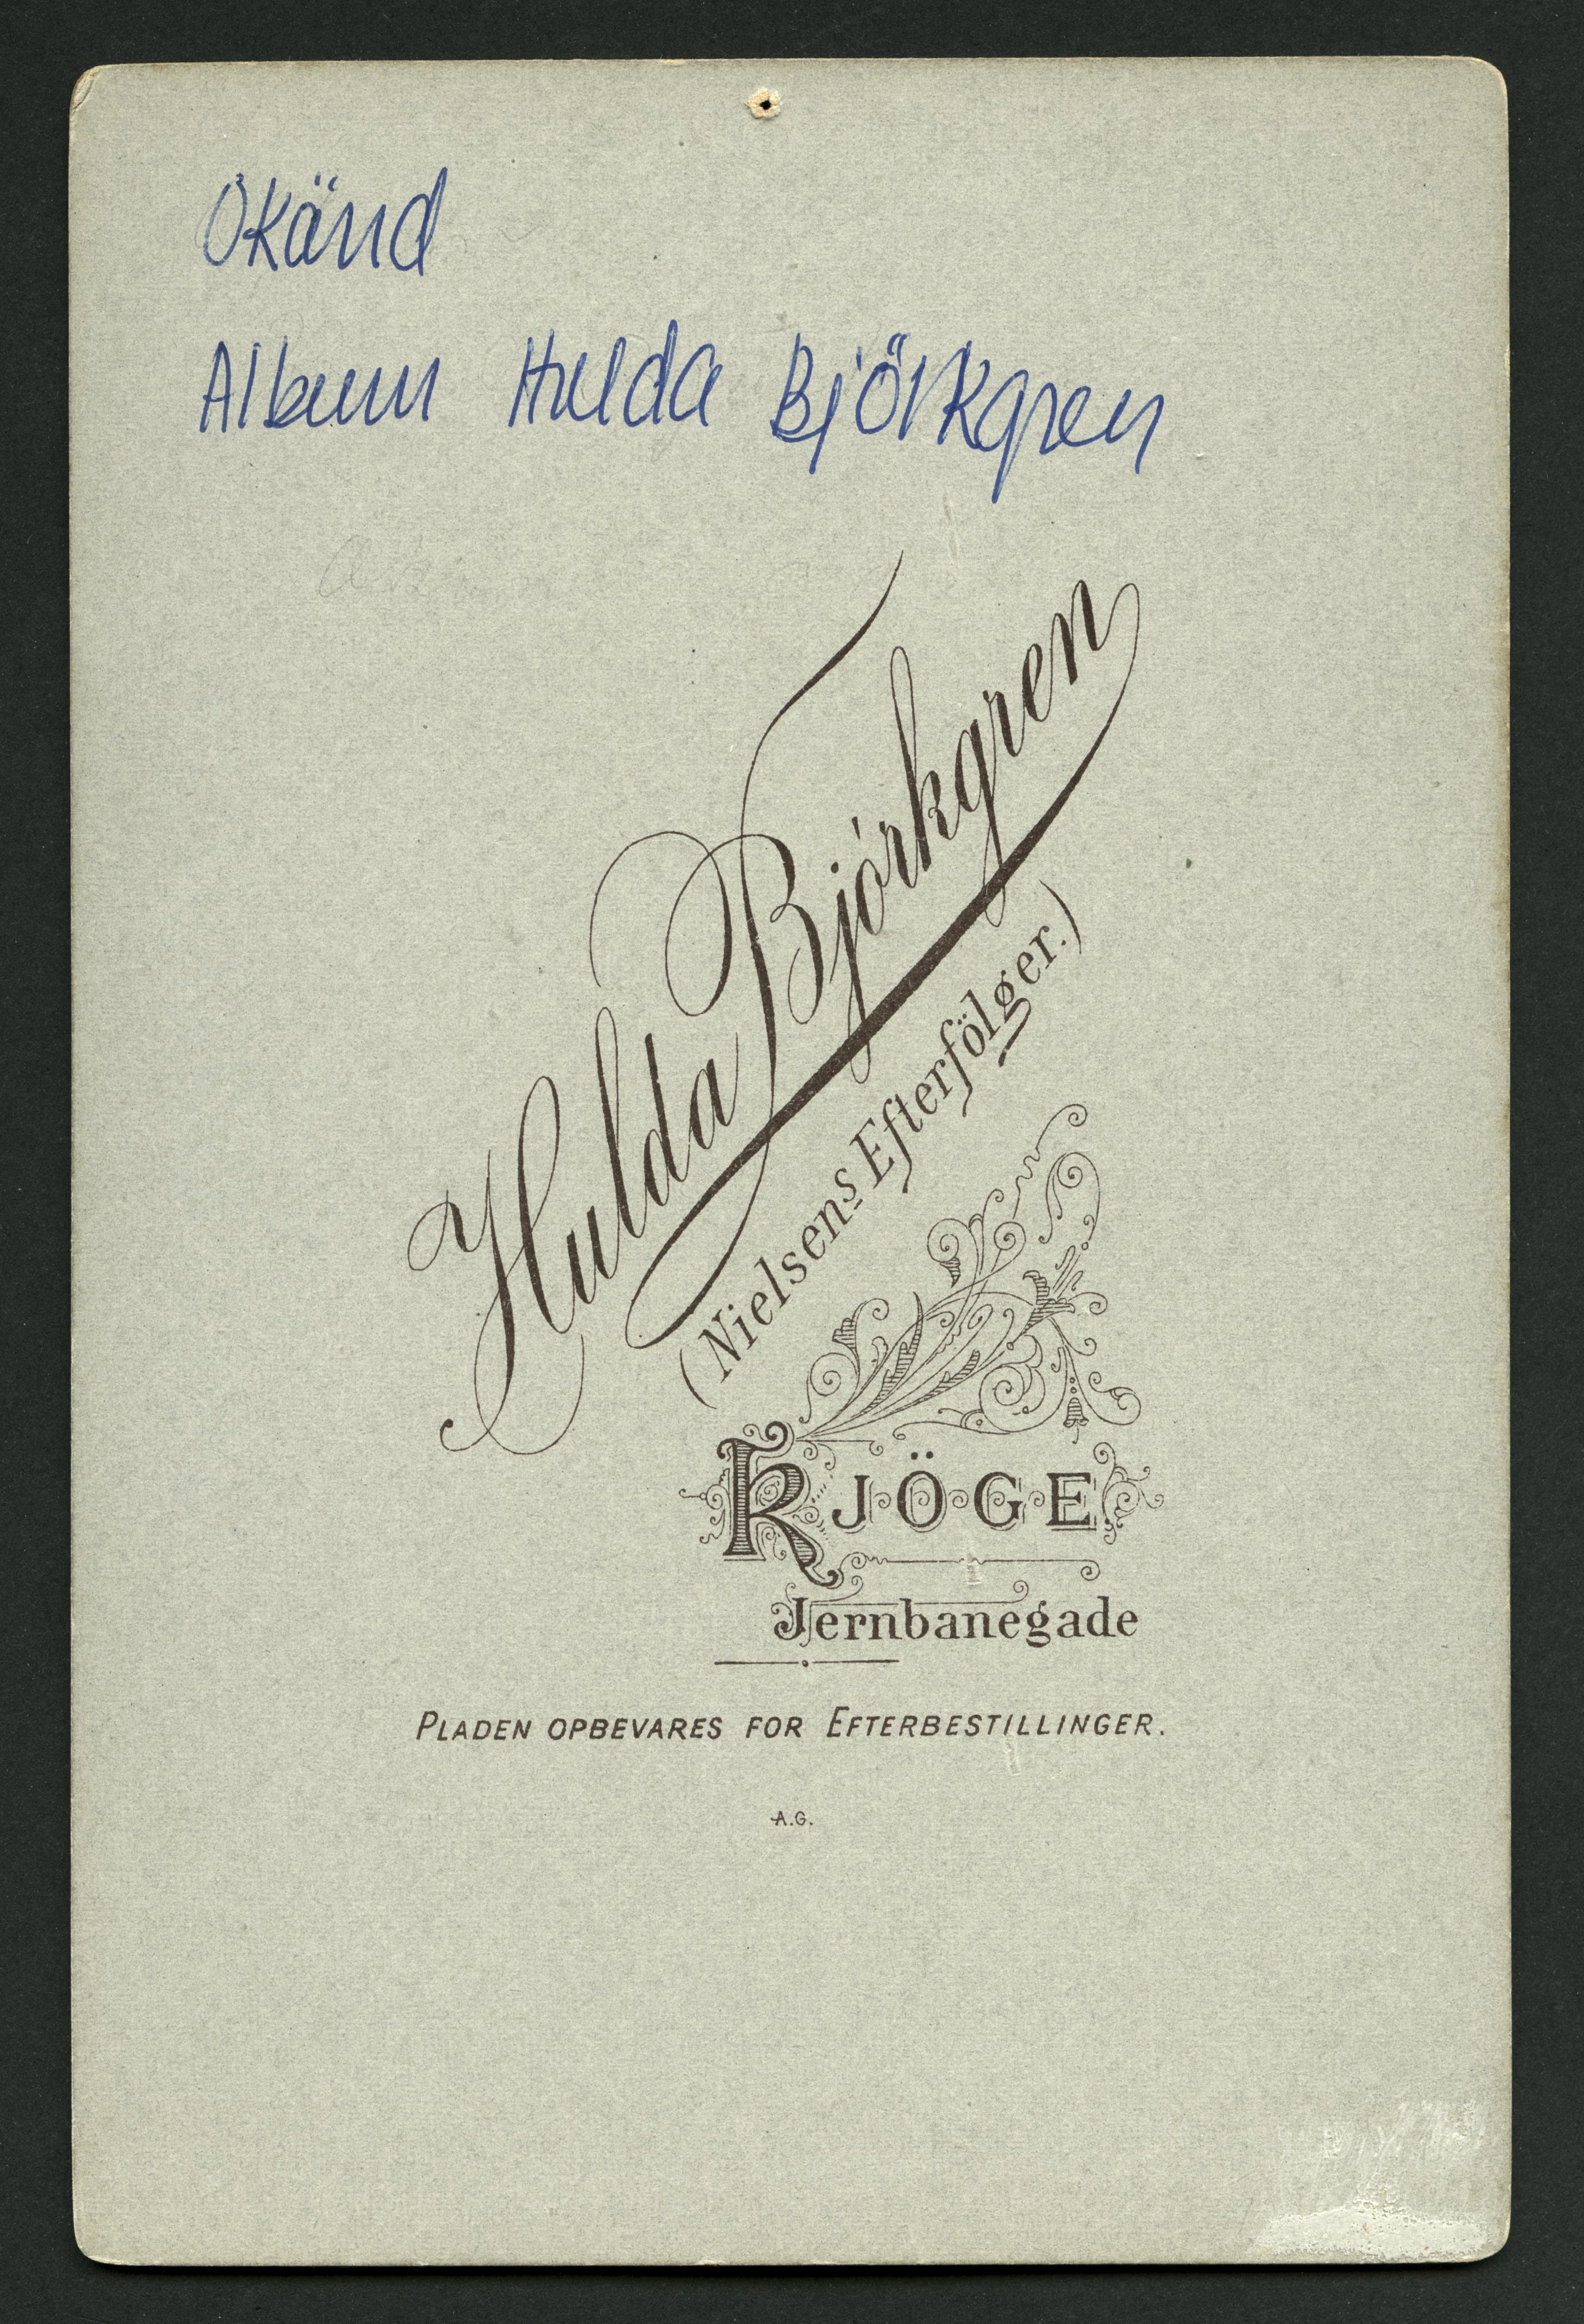 Okänd
Album Hulda Björkgren
Hulda Bjórkgren
(Nielsens Efterfölger.)
KJÖGE.
Jernbanegade
PLADEN OPBEVARES FOR EFTERBESTILLINGER.
A.G.